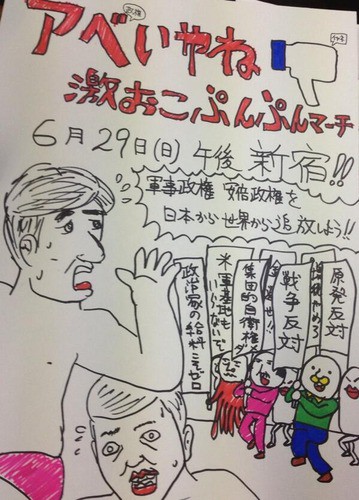 政権
アベいやね
激おこぷんぷんマーチ
6月29日(日) 午後 新宿!!
軍事政権 安倍政権を
日本から世界から追放しよう!!
原発反対
戦争反対
集団的自衛権
米軍基地も
いいかげんで
政治家の給料こそゼロ